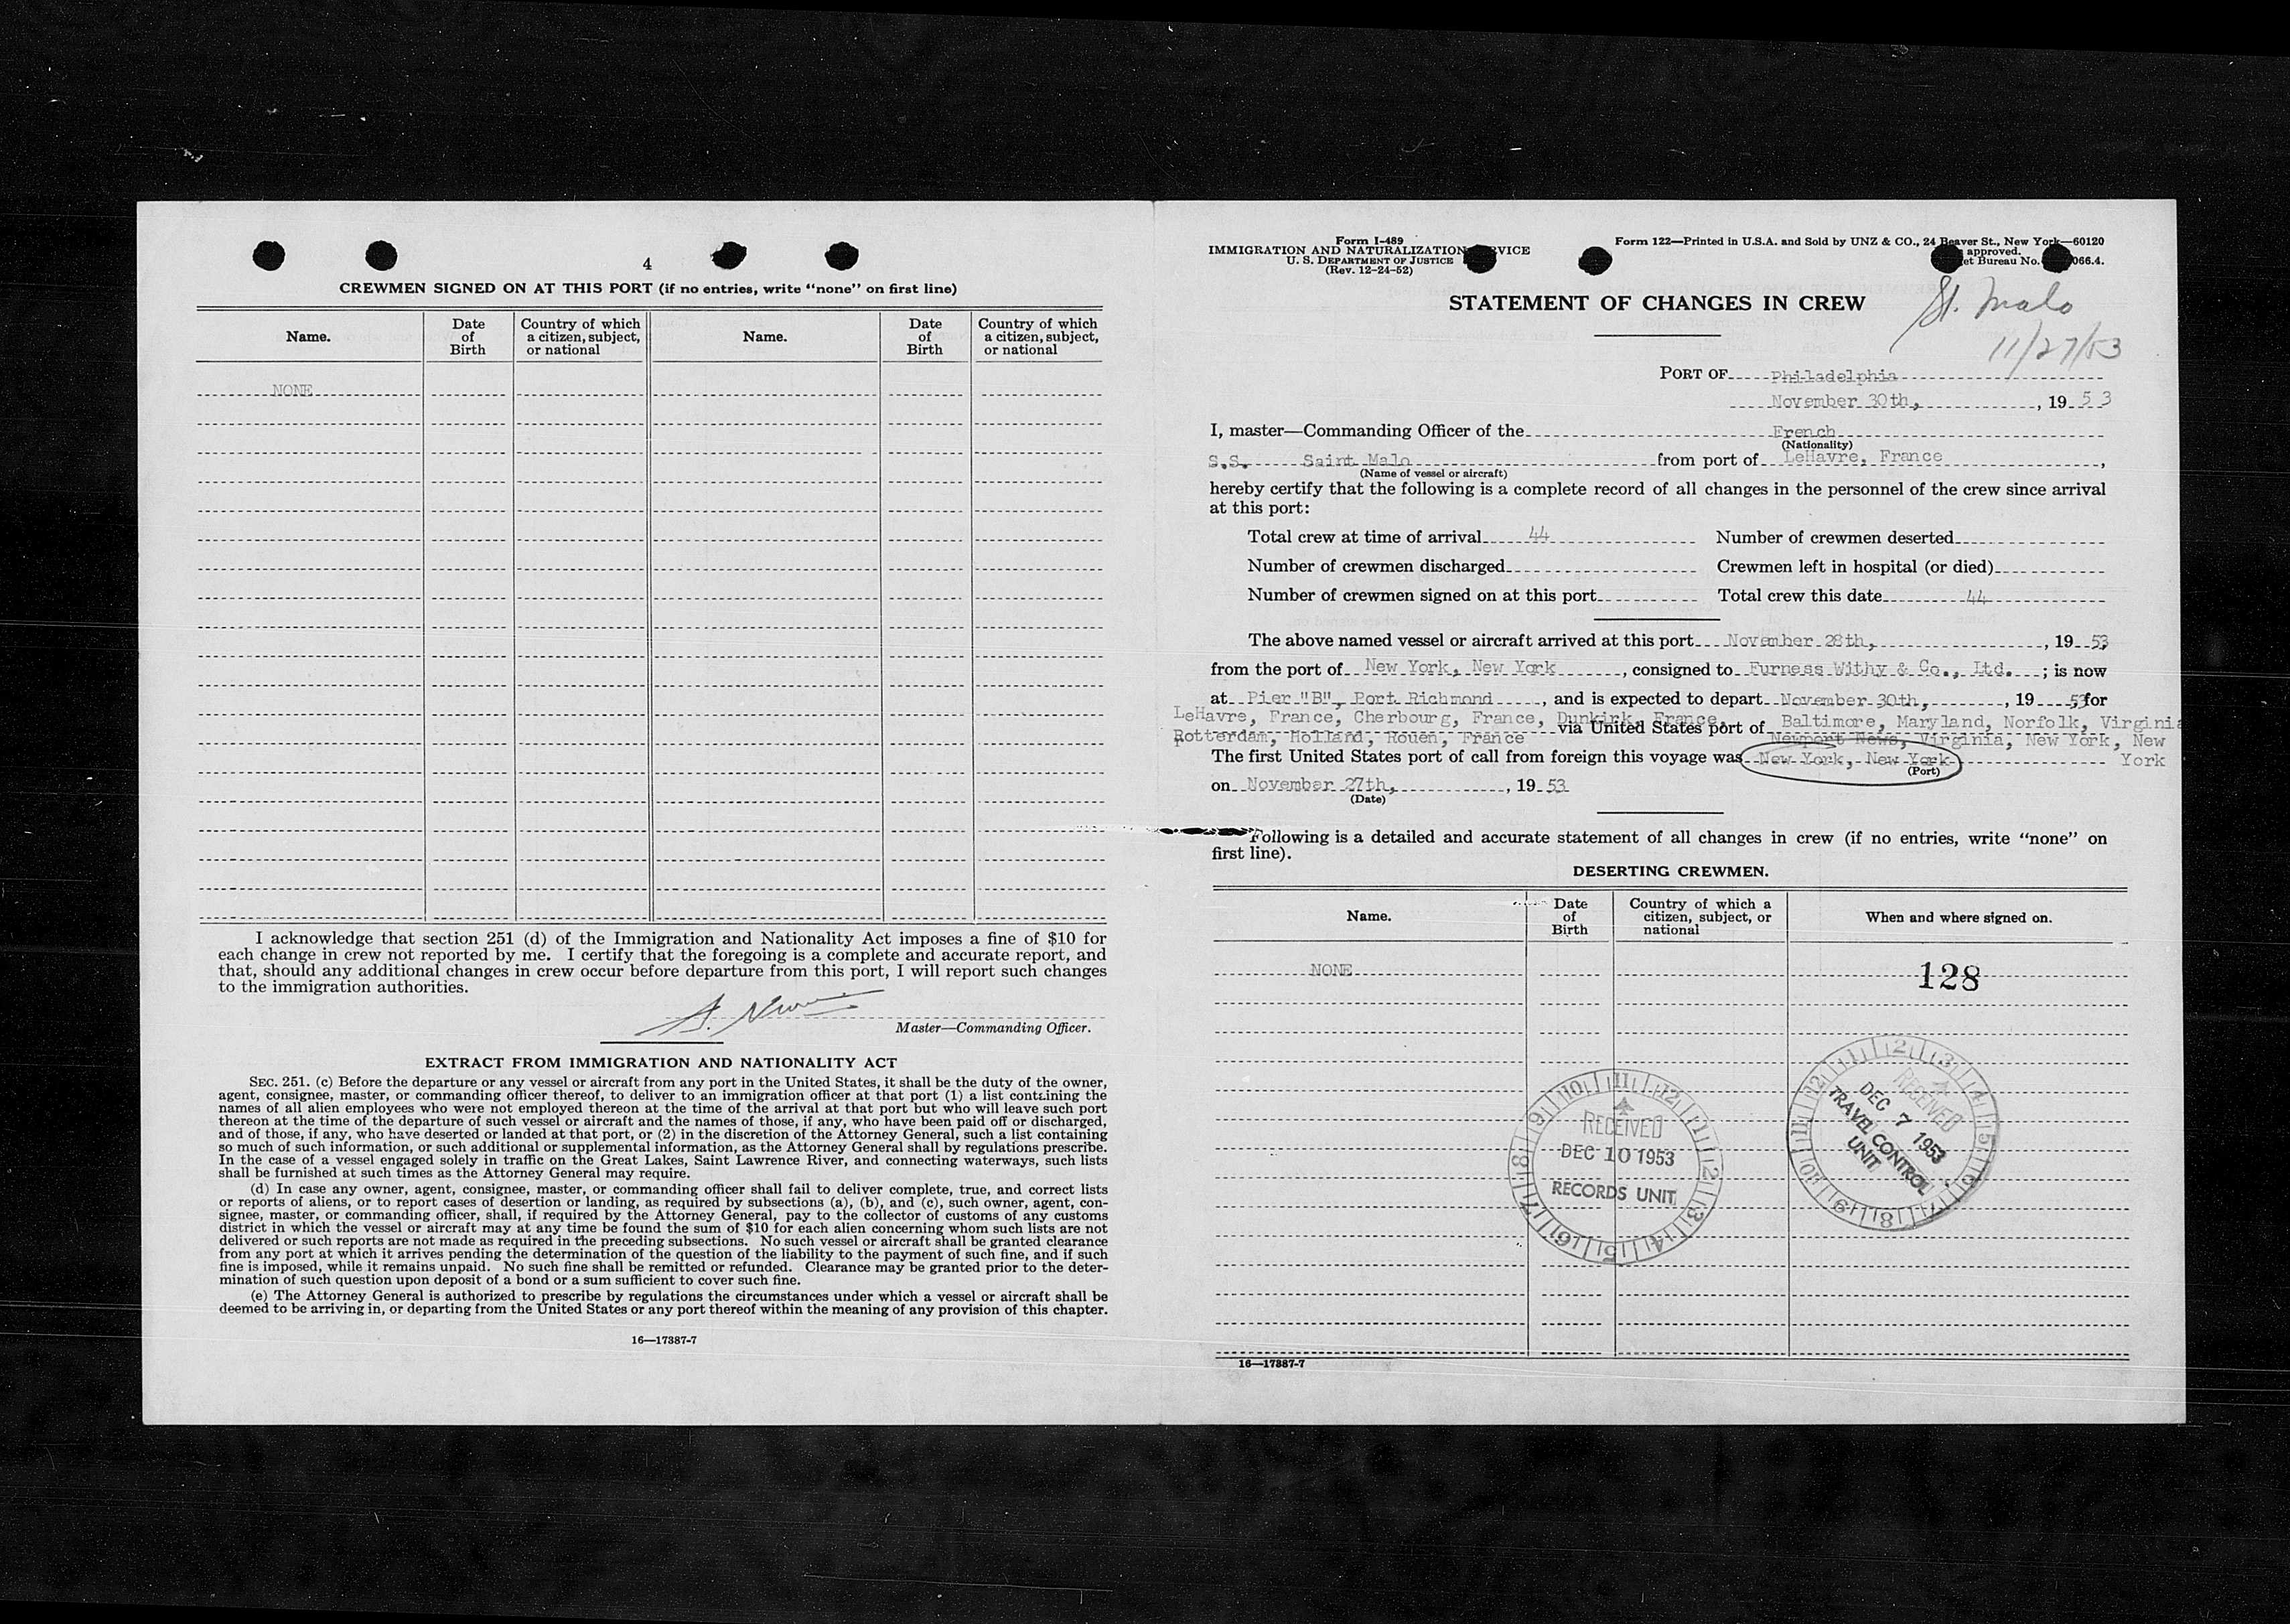 4
CREWMEN SIGNED ON AT THIS PORT (if no entries, write “none” on first line)
Name. Date of Birth Country of which a citizen, subject, or national Name. Date of Birth Country of which a citizen, subject, or national
NONE
I acknowledge that section 251 (d) of the Immigration and Nationality Act imposes a fine of $10 for
each change in crew not reported by me. I certify that the foregoing is a complete and accurate report, and
that, should any additional changes in crew occur before departure from this port, I will report such changes
to the immigration authorities.
Master—Commanding Officer.
EXTRACT FROM IMMIGRATION AND NATIONALITY ACT
SEC. 251. (c) Before the departure or any vessel or aircraft from any port in the United States, it shall be the duty of the owner,
agent, consignee, master, or commanding officer thereof, to deliver to an immigration officer at that port (1) a list containing the
names of all alien employees who were not employed thereon at the time of the arrival at that port but who will leave such port
thereon at the time of the departure of such vessel or aircraft and the names of those, if any, who have been paid off or discharged,
and of those, if any, who have deserted or landed at that port, or (2) in the discretion of the Attorney General, such a list containing
so much of such information, or such additional or supplemental information, as the Attorney General shall by regulations prescribe.
In the case of a vessel engaged solely in traffic on the Great Lakes, Saint Lawrence River, and connecting waterways, such lists
shall be furnished at such times as the Attorney General may require.
(d) In case any owner, agent, consignee, master, or commanding officer shall fail to deliver complete, true, and correct lists
or reports of aliens, or to report cases of desertion or landing, as required by subsections (a), (b), and (c), such owner, agent, con-
signee, master, or commanding officer, shall, if required by the Attorney General, pay to the collector of customs of any customs
district in which the vessel or aircraft may at any time be found the sum of $10 for each alien concerning whom such lists are not
delivered or such reports are not made as required in the preceding subsections. No such vessel or aircraft shall be granted clearance
from any port at which it arrives pending the determination of the question of the liability to the payment of such fine, and if such
fine is imposed, while it remains unpaid. No such fine shall be remitted or refunded. Clearance may be granted prior to the deter-
mination of such question upon deposit of a bond or a sum sufficient to cover such fine.
(e) The Attorney General is authorized to prescribe by regulations the circumstances under which a vessel or aircraft shall be
deemed to be arriving in, or departing from the United States or any port thereof within the meaning of any provision of this chapter.
16—17387-7
Form I-489
IMMIGRATION AND NATURALIZATION
U. S. DEPARTMENT OF JUSTICE
(Rev. 12-24-52)
Form 122—Printed in U.S.A. and Sold by UNZ & CO., 24 Beaver St., New York—60120
approved.
Bureau No. 066.4.
STATEMENT OF CHANGES IN CREW
St. Malo
11/27/53
PORT OF Philadelphia
November 30th, , 19 53
I, master—Commanding Officer of the French
(Nationality)
S.S. Saint Malo from port of LeHavre, France ,
(Name of vessel or aircraft)
hereby certify that the following is a complete record of all changes in the personnel of the crew since arrival
at this port:
Total crew at time of arrival 44 Number of crewmen deserted
Number of crewmen discharged Crewmen left in hospital (or died)
Number of crewmen signed on at this port Total crew this date 44
The above named vessel or aircraft arrived at this port November 28th, , 19 53
from the port of New York, New York , consigned to Furness Withy & Co., Ltd. ; is now
at Pier "B", Port Richmond , and is expected to depart November 30th, , 19 53 for
LeHavre, France, Cherbourg, France, Dunkirk, France, Baltimore, Maryland, Norfolk, Virginia
Rotterdam, Holland, Rouen, France via United States port of Newport News, Virginia, New York, New
The first United States port of call from foreign this voyage was New York, New York York
(Port)
on November 27th, , 19 53
(Date)
Following is a detailed and accurate statement of all changes in crew (if no entries, write “none” on
first line).
DESERTING CREWMEN.
Name. Date of Birth Country of which a citizen, subject, or national When and where signed on.
NONE 128
RECEIVED
DEC 10 1953
RECORDS UNIT
RECEIVED
DEC 7 1953
TRAVEL CONTROL
UNIT
16—17387-7